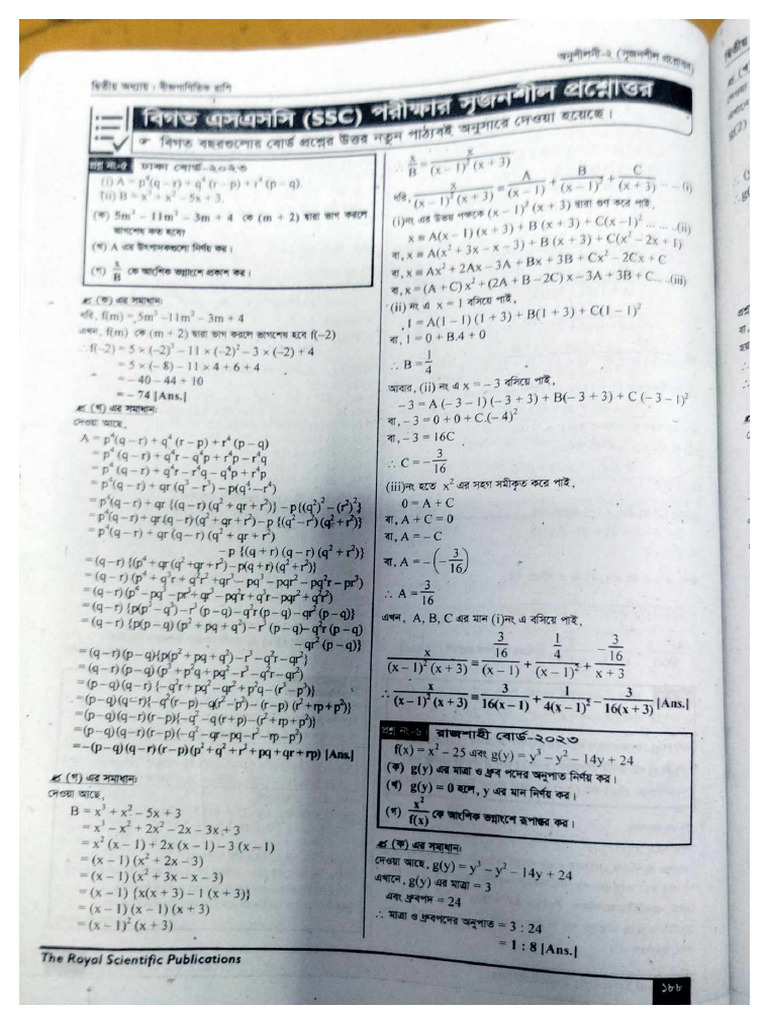 অনুশীলনী-২ (সৃজনশীল প্রশ্নোত্তর)
দ্বিতীয় অধ্যায় : বীজগাণিতিক রাশি
বিগত এসএসসি (SSC) পরীক্ষার সৃজনশীল প্রশ্নোত্তর
☞ বিগত বছরগুলোর বোর্ড প্রশ্নের উত্তর নতুন পাঠ্যবই অনুসারে দেওয়া হয়েছে।
ঢাকা বোর্ড-২০২৩
(i) A = p⁴(q – r) + q⁴ (r – p) + r⁴ (p – q)
(ii) B = x³ + x² – 5x + 3.
(ক) 5m³ – 11m² – 3m + 4 কে (m + 2) দ্বারা ভাগ করলে
ভাগশেষ কত হবে?
(খ) A এর উৎপাদকগুলো নির্ণয় কর।
(গ) x/B কে আংশিক ভগ্নাংশে প্রকাশ কর।
✍ (ক) এর সমাধান:
ধরি, f(m) = 5m³ –11m² – 3m + 4
এখন, f(m) কে (m + 2) দ্বারা ভাগ করলে ভাগশেষ হবে f(–2)
∴ f(–2) = 5 × (–2)³ – 11 × (–2)² – 3 × (–2) + 4
= 5 × (– 8) – 11 × 4 + 6 + 4
= – 40 – 44 + 10
= – 74 [Ans.]
✍ (খ) এর সমাধান:
দেওয়া আছে,
A = p⁴(q – r) + q⁴ (r – p) + r⁴ (p – q)
= p⁴ (q – r) + q⁴r – q⁴p + r⁴p – r⁴q
= p⁴ (q – r) + q⁴r – r⁴q – q⁴p + r⁴p
= p⁴(q – r) + qr (q³ – r³) – p(q⁴ – r⁴)
= p⁴(q – r) + qr {(q – r) (q² + qr + r²)} – p{(q²)² – (r²)²}
= p⁴(q – r) + qr (q – r) (q² + qr + r²) – p {(q² – r²) (q² + r²)}
= p⁴(q – r) + qr (q – r) (q² + qr + r²)
– p {(q + r) (q – r) (q² + r²)}
= (q – r) {(p⁴ + qr (q² +qr + r²) – p(q + r) (q² + r²)}
= (q – r) (p⁴ + q³r + q²r² + qr³ – pq³ – pqr² – pq²r – pr³)
= (q – r) (p⁴ – pq³ – pr³ + qr³ – pq²r + q³r – pqr² + q²r²)
= (q – r) {p(p³ – q³) – r³ (p – q) – q²r (p – q) – qr² (p – q)}
= (q – r) {p(p – q) (p² + pq + q²) – r³ (p – q) – q²r (p – q)
– qr² (p – q)}
= (q – r) (p – q){p(p² + pq + q²) – r³ – q²r – qr²}
= (q – r) (p – q)(p³ + p²q + pq² – r³ – q²r – qr²)
= (p – q)(q – r) {– q²r + pq² – qr² + p²q – (r³ – p³)}
= (p – q)(q – r){–q²(r – p) – q(r² – p²) – (r – p) (r² + rp + p²)}
= (p – q)(q – r)(r – p){–q² – q (r + p) – (r² + rp + p²)}
= (p – q)(q – r)(r – p)(–q² – qr – pq – r² – rp – p²)
= –(p – q)(q – r)(r – p)(p² + q² + r² + pq + qr + rp) [Ans.]
✍ (গ) এর সমাধান:
দেওয়া আছে,
B = x³ + x² – 5x + 3
= x³ – x² + 2x² – 2x – 3x + 3
= x² (x – 1) + 2x (x – 1) – 3 (x – 1)
= (x – 1) (x² + 2x – 3)
= (x – 1) (x² + 3x – x – 3)
= (x – 1) {x(x + 3) – 1 (x + 3)}
= (x – 1) (x – 1) (x + 3)
= (x – 1)² (x + 3)
∴ x/B = x/((x – 1)² (x + 3))
ধরি, x/((x – 1)² (x + 3)) = A/(x – 1) + B/(x – 1)² + C/(x + 3) ... ... (i)
(i)নং এর উভয় পক্ষকে (x – 1)² (x + 3) দ্বারা গুণ করে পাই,
x = A(x – 1) (x + 3) + B (x + 3) + C(x –1)² ... ... ...(ii)
বা, x = A(x² + 3x – x – 3) + B (x + 3) + C(x² – 2x + 1)
বা, x = Ax² + 2Ax – 3A + Bx + 3B + Cx² – 2Cx + C
বা, x = (A + C) x² + (2A + B – 2C) x – 3A + 3B + C.... ..(iii)
(ii) নং এ x = 1 বসিয়ে পাই,
1 = A(1 – 1) (1 + 3) + B(1 + 3) + C(1 – 1)²
বা, 1 = 0 + B.4 + 0
∴ B = 1/4
আবার, (ii) নং এ x = – 3 বসিয়ে পাই,
– 3 = A (– 3 – 1) (– 3 + 3) + B(– 3 + 3) + C (– 3 – 1)²
বা, – 3 = 0 + 0 + C.(– 4)²
বা, – 3 = 16C
∴ C = – 3/16
(iii)নং হতে x² এর সহগ সমীকৃত করে পাই,
0 = A + C
বা, A + C = 0
বা, A = – C
বা, A = – (– 3/16)
∴ A = 3/16
এখন, A, B, C এর মান (i)নং এ বসিয়ে পাই,
x/((x – 1)² (x + 3)) = (3/16)/(x – 1) + (1/4)/(x – 1)² + (– 3/16)/(x + 3)
∴ x/((x – 1)² (x + 3)) = 3/(16(x – 1)) + 1/(4(x – 1)²) – 3/(16(x + 3)) [Ans.]
প্রশ্ন নং-৬ রাজশাহী বোর্ড-২০২৩
f(x) = x² – 25 এবং g(y) = y³ – y² – 14y + 24
(ক) g(y) এর মাত্রা ও ধ্রুব পদের অনুপাত নির্ণয় কর।
(খ) g(y) = 0 হলে, y এর মান নির্ণয় কর।
(গ) x²/f(x) কে আংশিক ভগ্নাংশে রূপান্তর কর।
✍ (ক) এর সমাধান:
দেওয়া আছে, g(y) = y³ – y² – 14y + 24
এখানে, g(y) এর মাত্রা = 3
এবং ধ্রুবপদ = 24
∴ মাত্রা ও ধ্রুবপদের অনুপাত = 3 : 24
= 1 : 8 [Ans.]
The Royal Scientific Publications
১৮৮